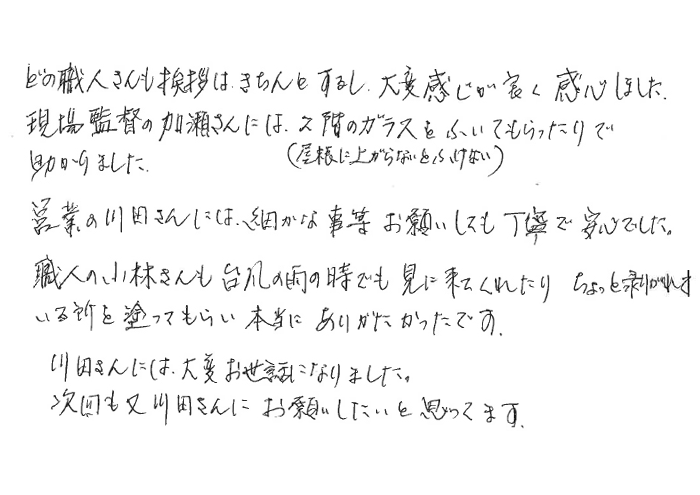 どの職人さんも挨拶は、きちんとするし、大変感じが良く感心しました。
現場監督の加瀬さんには、2階のガラスをふいてもらったりで
(屋根に上がらないとふけない)
助かりました。
営業の川田さんには、細かな事等お願いしても丁寧で安心でした。
職人の小林さんも台風の雨の時でも見に来てくれたり ちょっと剥がれて
いる所を塗ってもらい本当にありがたかったです。
川田さんには、大変お世話になりました。
次回も又川田さんにお願いしたいと思ってます。